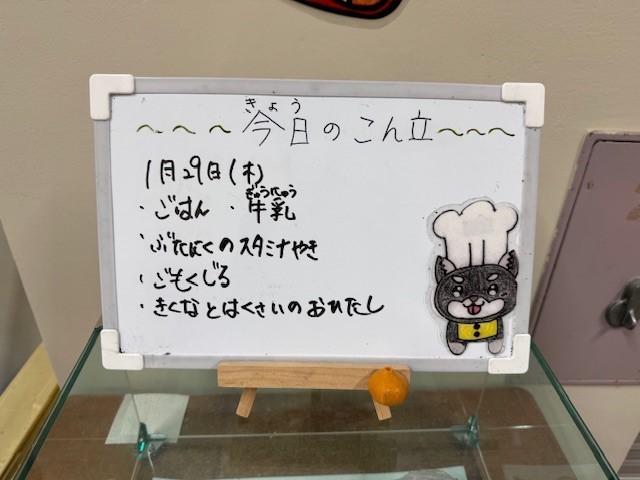 きょう
~~~今日のこん立~~~
1月29日(木)
・ごはん ・牛乳
ぎゅうにゅう
・ぶたにくのスタミナやき
・ごもくじる
・きくなとはくさいのおひたし